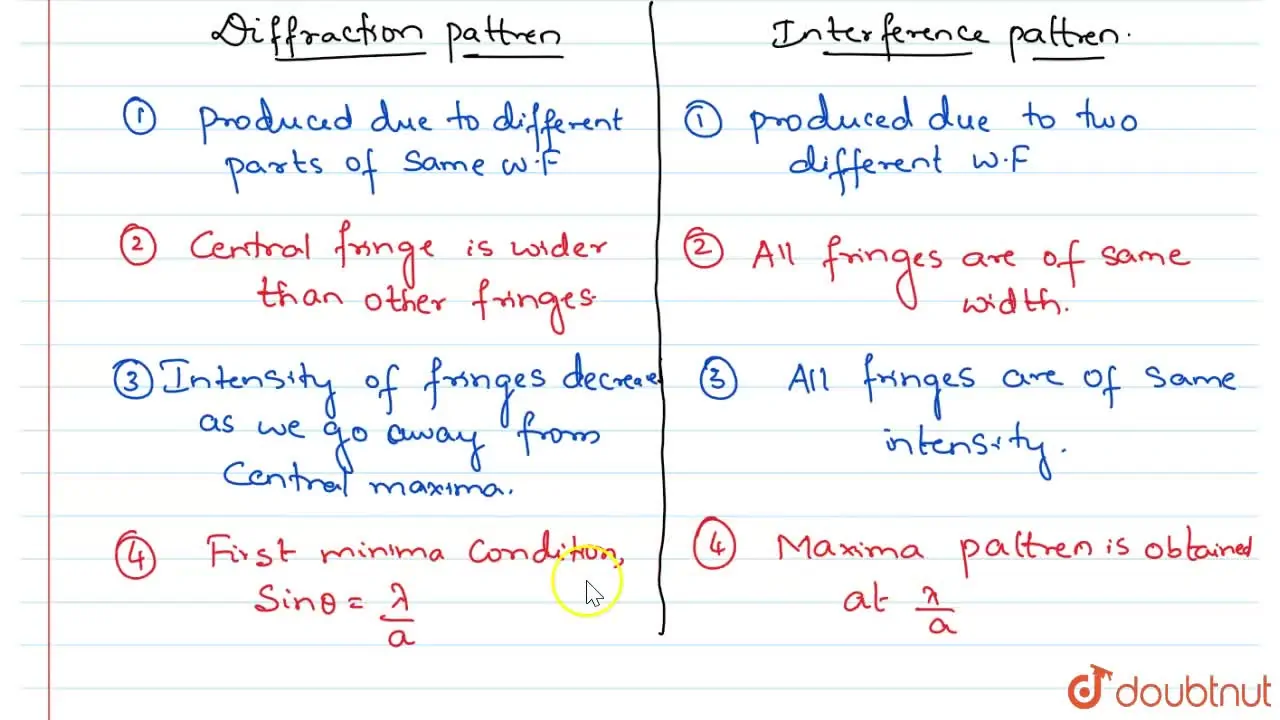 Diffraction pattren
① produced due to different
parts of same W.F
② Central fringe is wider
than other fringes.
③ Intensity of fringes decreases
as we go away from
Central maxima.
④ First minima condition,
Sinθ = λ/a
Interference pattren.
① produced due to two
different W.F
② All fringes are of same
width.
③ All fringes are of same
intensity.
④ Maxima pattren is obtained
at λ/a
doubtnut